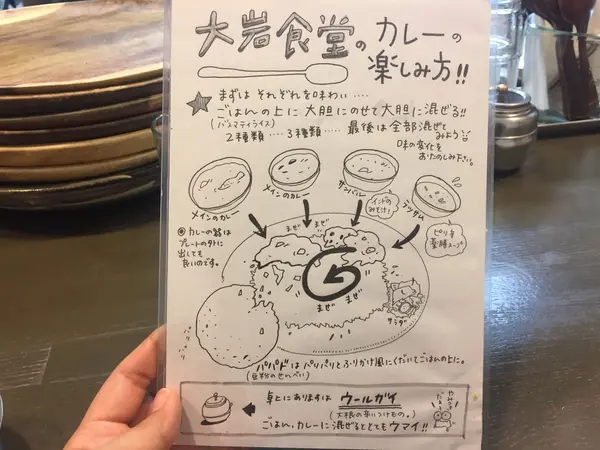 大岩食堂のカレーの
楽しみ方!!
まずは それぞれを味わい……
★ごはんの上に 大胆にのせて大胆に混ぜる!!
(バスマティライス)
2種類……3種類…… 最後は全部混ぜて
みよう
味の変化を
お楽しみ下さい。
メインのカレー
メインのカレー
サンバル
インドの
みそ汁!
ラッサム
ピリ辛
薬膳スープ
◎カレーの器は
プレートの外に
出しても
良いのです。
まぜ まぜ
まぜ まぜ
サラダ
パリパリ
パパドはパリパリとふりかけ風にくだいてごはんの上に。
(豆粉のせんべい)
卓上にありますは ウールガイ
(大根の辛いつけもの。)
ごはん、カレーに混ぜるととてもウマイ!!